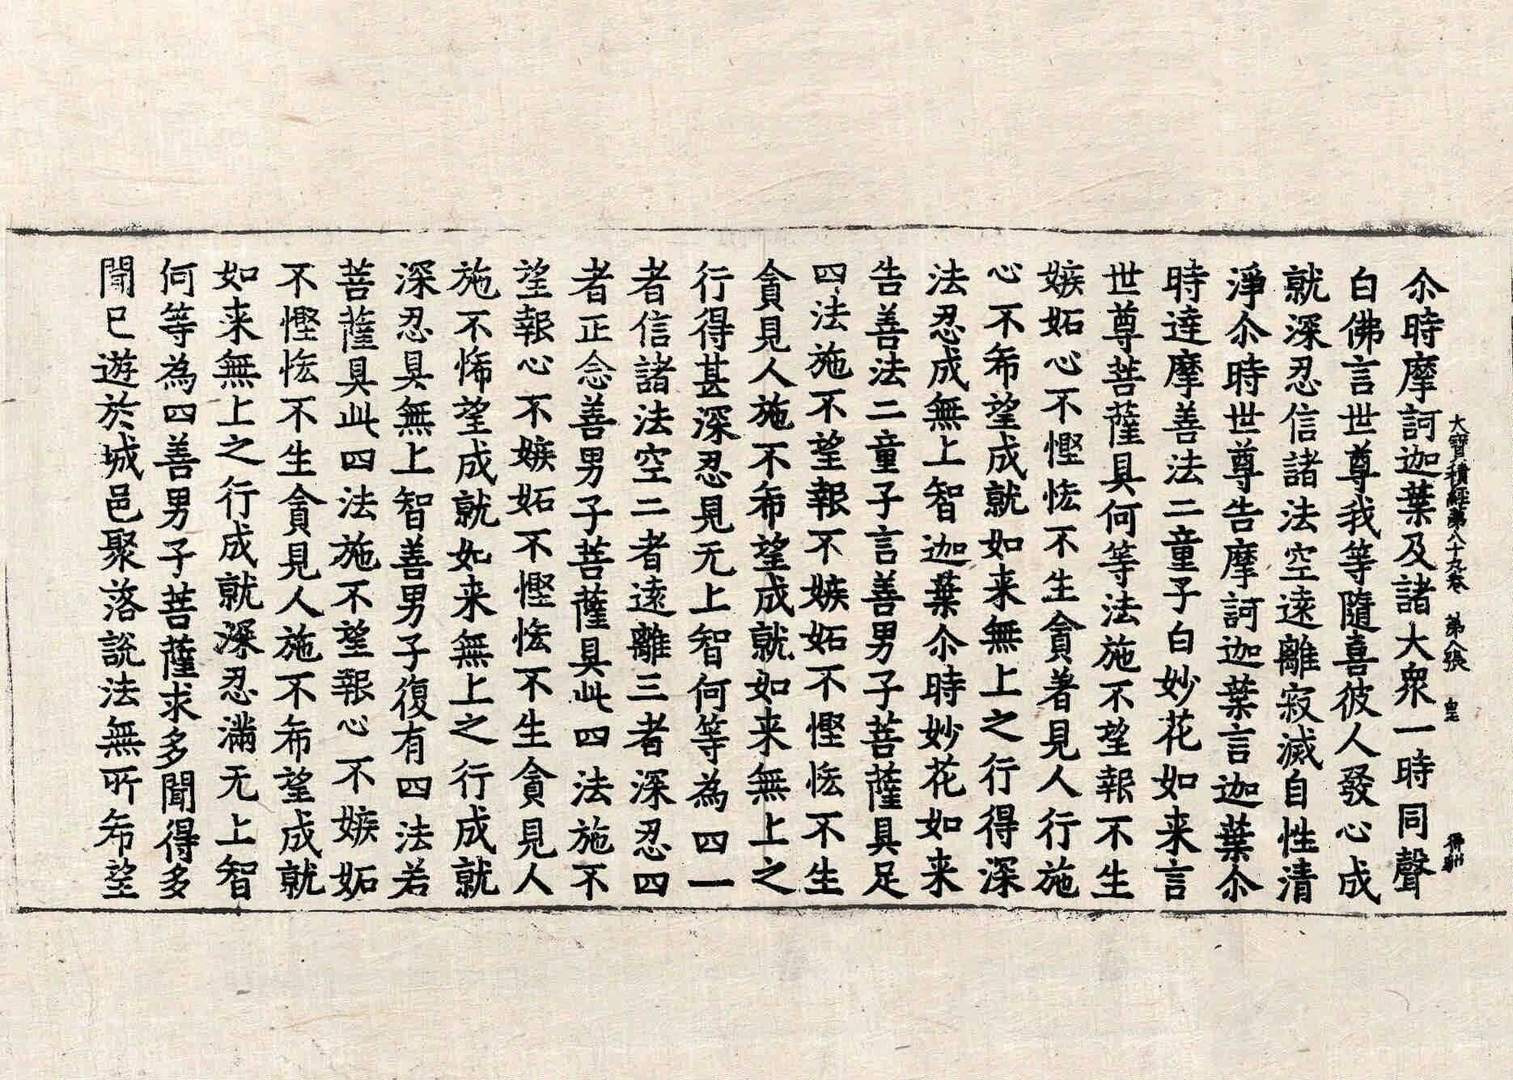 大寶積經第八十九卷 第八張 皇
尒時摩訶迦葉及諸大衆一時同聲
白佛言世尊我等隨喜彼人發心成
就深忍信諸法空遠離寂滅自性清
淨尒時世尊告摩訶迦葉言迦葉尒
時達摩善法二童子白妙花如来言
世尊菩薩具何等法施不望報不生
嫉妬心不慳悋不生貪著見人行施
心不希望成就如来無上之行得深
法忍成無上智迦葉尒時妙花如来
告善法二童子言善男子菩薩具足
四法施不望報不嫉妬不慳悋不生
貪見人施不希望成就如来無上之
行得甚深忍見无上智何等為四一
者信諸法空二者遠離三者深忍四
者正念善男子菩薩具此四法施不
望報心不嫉妬不慳悋不生貪見人
施不悕望成就如来無上之行成就
深忍具無上智善男子復有四法若
菩薩具此四法施不望報心不嫉妬
不慳悋不生貪見人施不希望成就
如来無上之行成就深忍滿无上智
何等為四善男子菩薩求多聞得多
聞已遊於城邑聚落說法無所希望